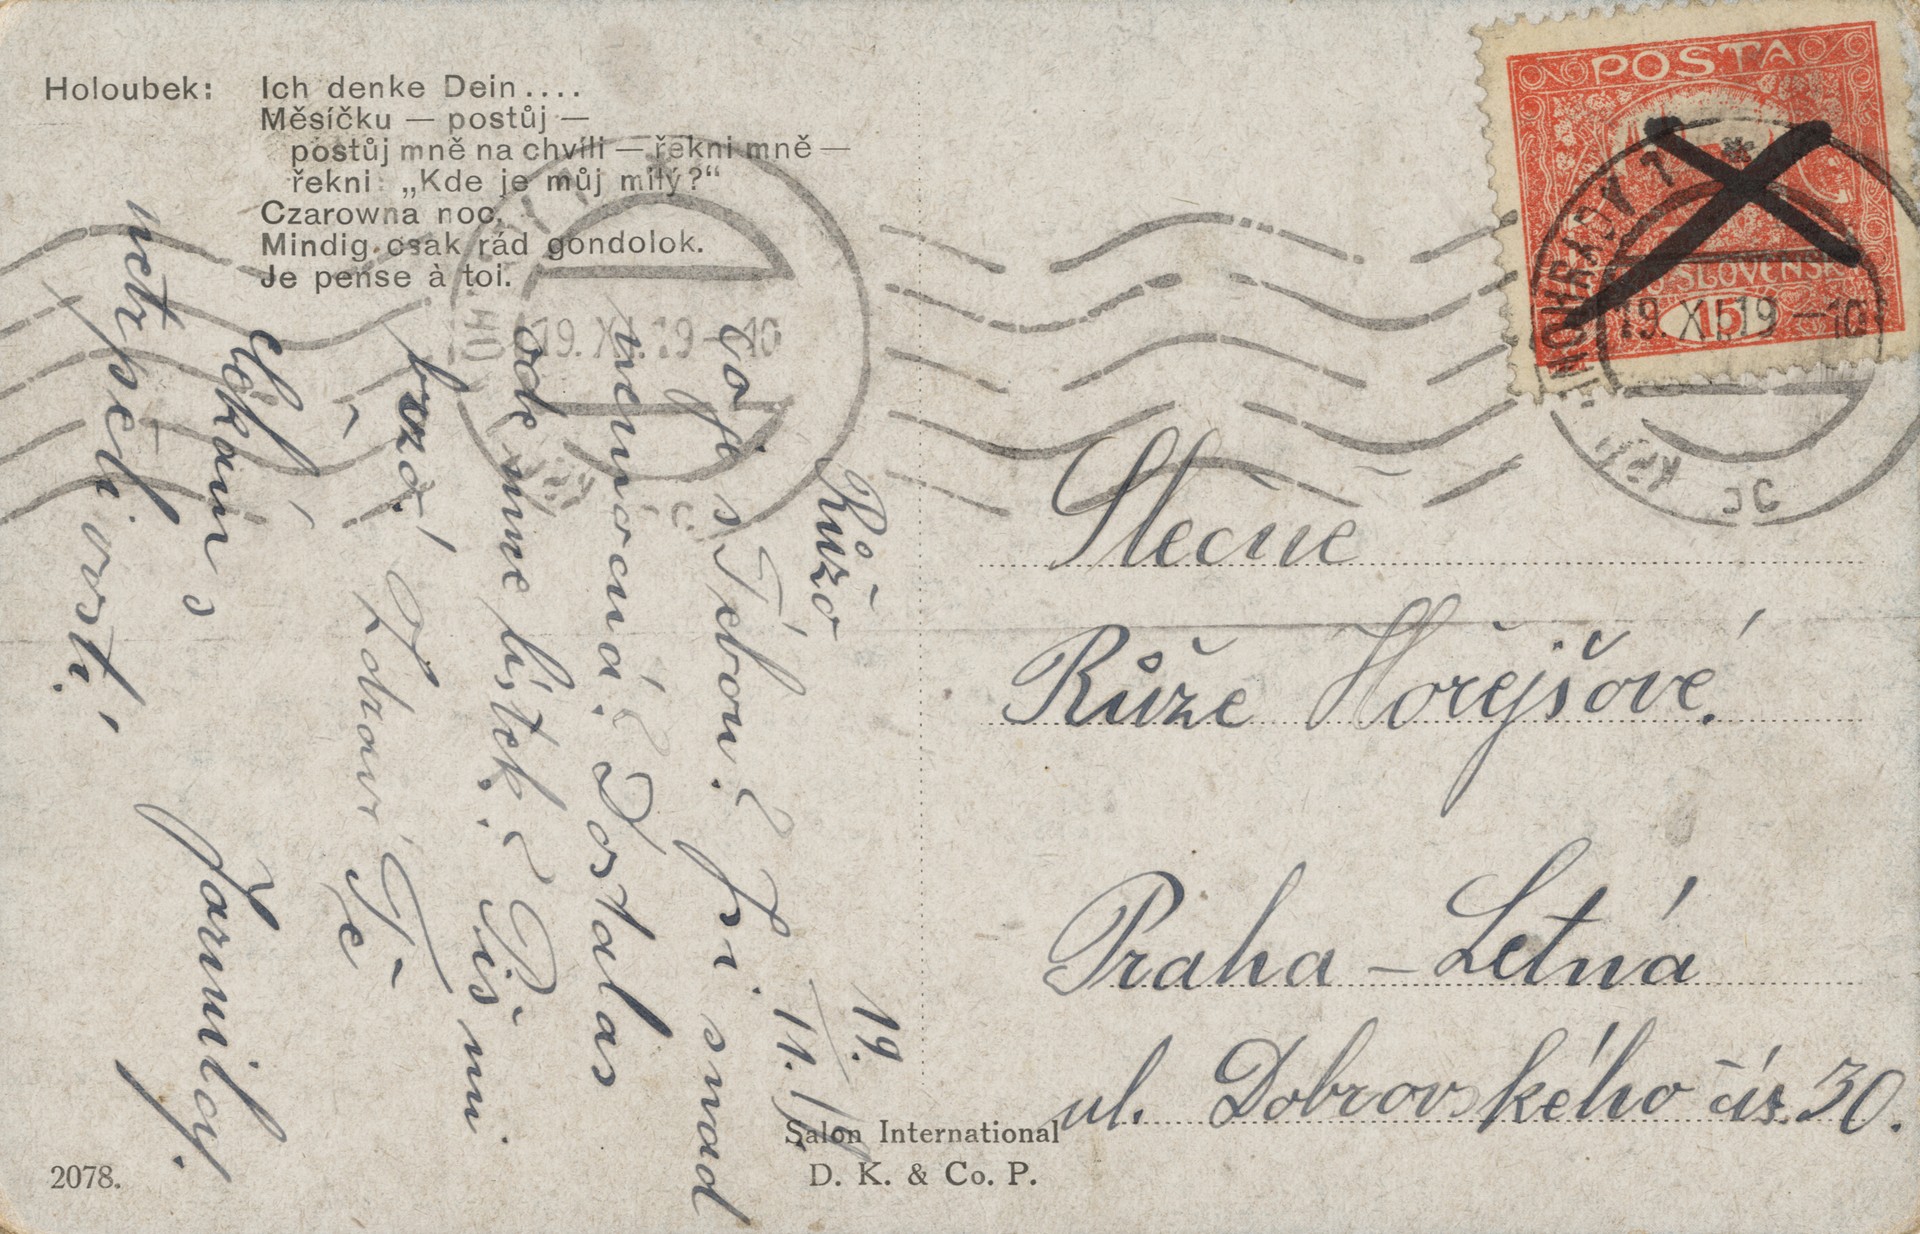 Holoubek: Ich denke Dein....
Měsíčku — postůj —
postůj mně na chvíli — řekni mně —
řekni: „Kde je můj milý?“
Czarowna noc.
Mindig csak rád gondolok.
Je pense à toi.
POŠTA
SLOVENSK
15
19. XI. 19 -10
19. XI. 19 -10
3C
Slečně
Růže Hořejšové.
Praha - Letná
ul. Dobrovského čís. 30.
19.
11. 19.
Růžo
co je s Tebou? Jsi snad
nemocná? Dostalas
ode mne lístek? Piš mi
brzo! Zdraví Tě
Čekám s Jarmila
netrpělivostí
Salon International
D. K. & Co. P.
2078.